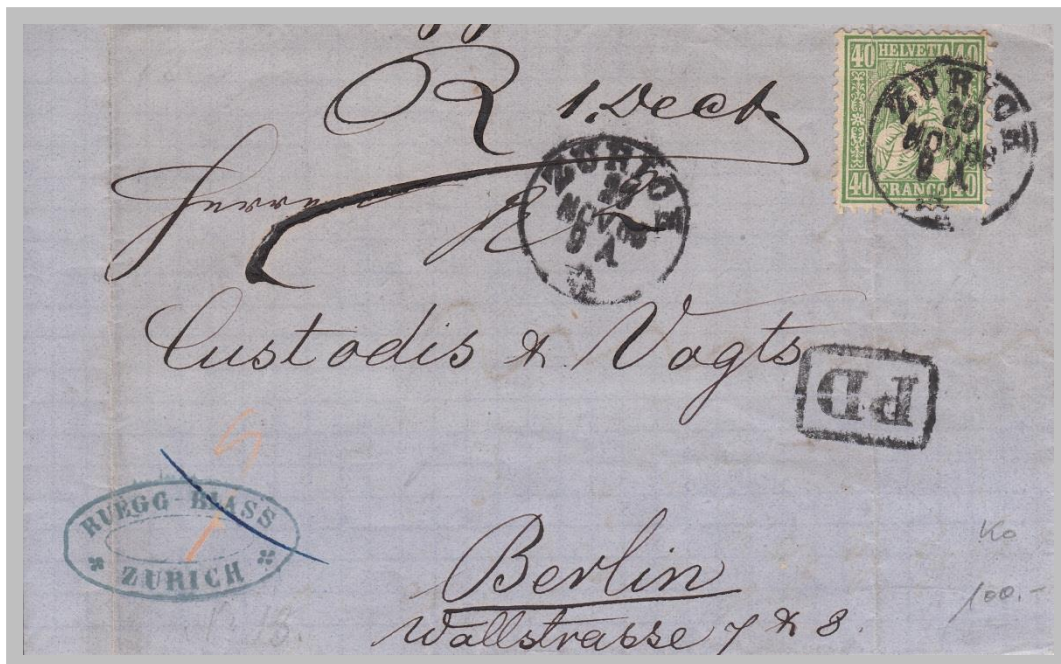 40 HELVETIA 40
40 FRANCO 40
ZURICH
NOV
R 1. Dec
ZURICH
NOV
Herren
Custodis & Vogts
PD
RUEGG-BLASS
ZURICH
Berlin
Wallstrasse 7 & 8.
Ko
100.-